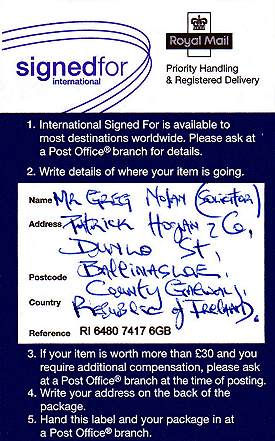 signedfor
international
Royal Mail
Priority Handling
& Registered Delivery
1. International Signed For is available to
most destinations worldwide. Please ask at
a Post Office® branch for details.
2. Write details of where your item is going.
Name Mr GREG NOLAN (Solicitor)
Address PATRICK HOGAN & Co,
DUNLO ST,
BALLINASLOE,
Postcode
COUNTY GALWAY,
Country
REPUBLIC of IRELAND.
Reference RI 6480 7417 6GB
3. If your item is worth more than £30 and you
require additional compensation, please ask
at a Post Office® branch at the time of posting.
4. Write your address on the back of the
package.
5. Hand this label and your package in at
a Post Office® branch.